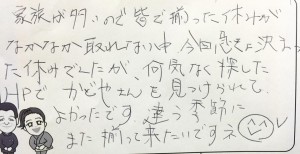 家族が多いので皆で揃った休みが
なかなか取れない中 今回急きょ決まっ
た休みでしたが、何気なく探した
HPで かどやさんを見つけられて
よかったです。違う季節に
また揃って来たいですネ